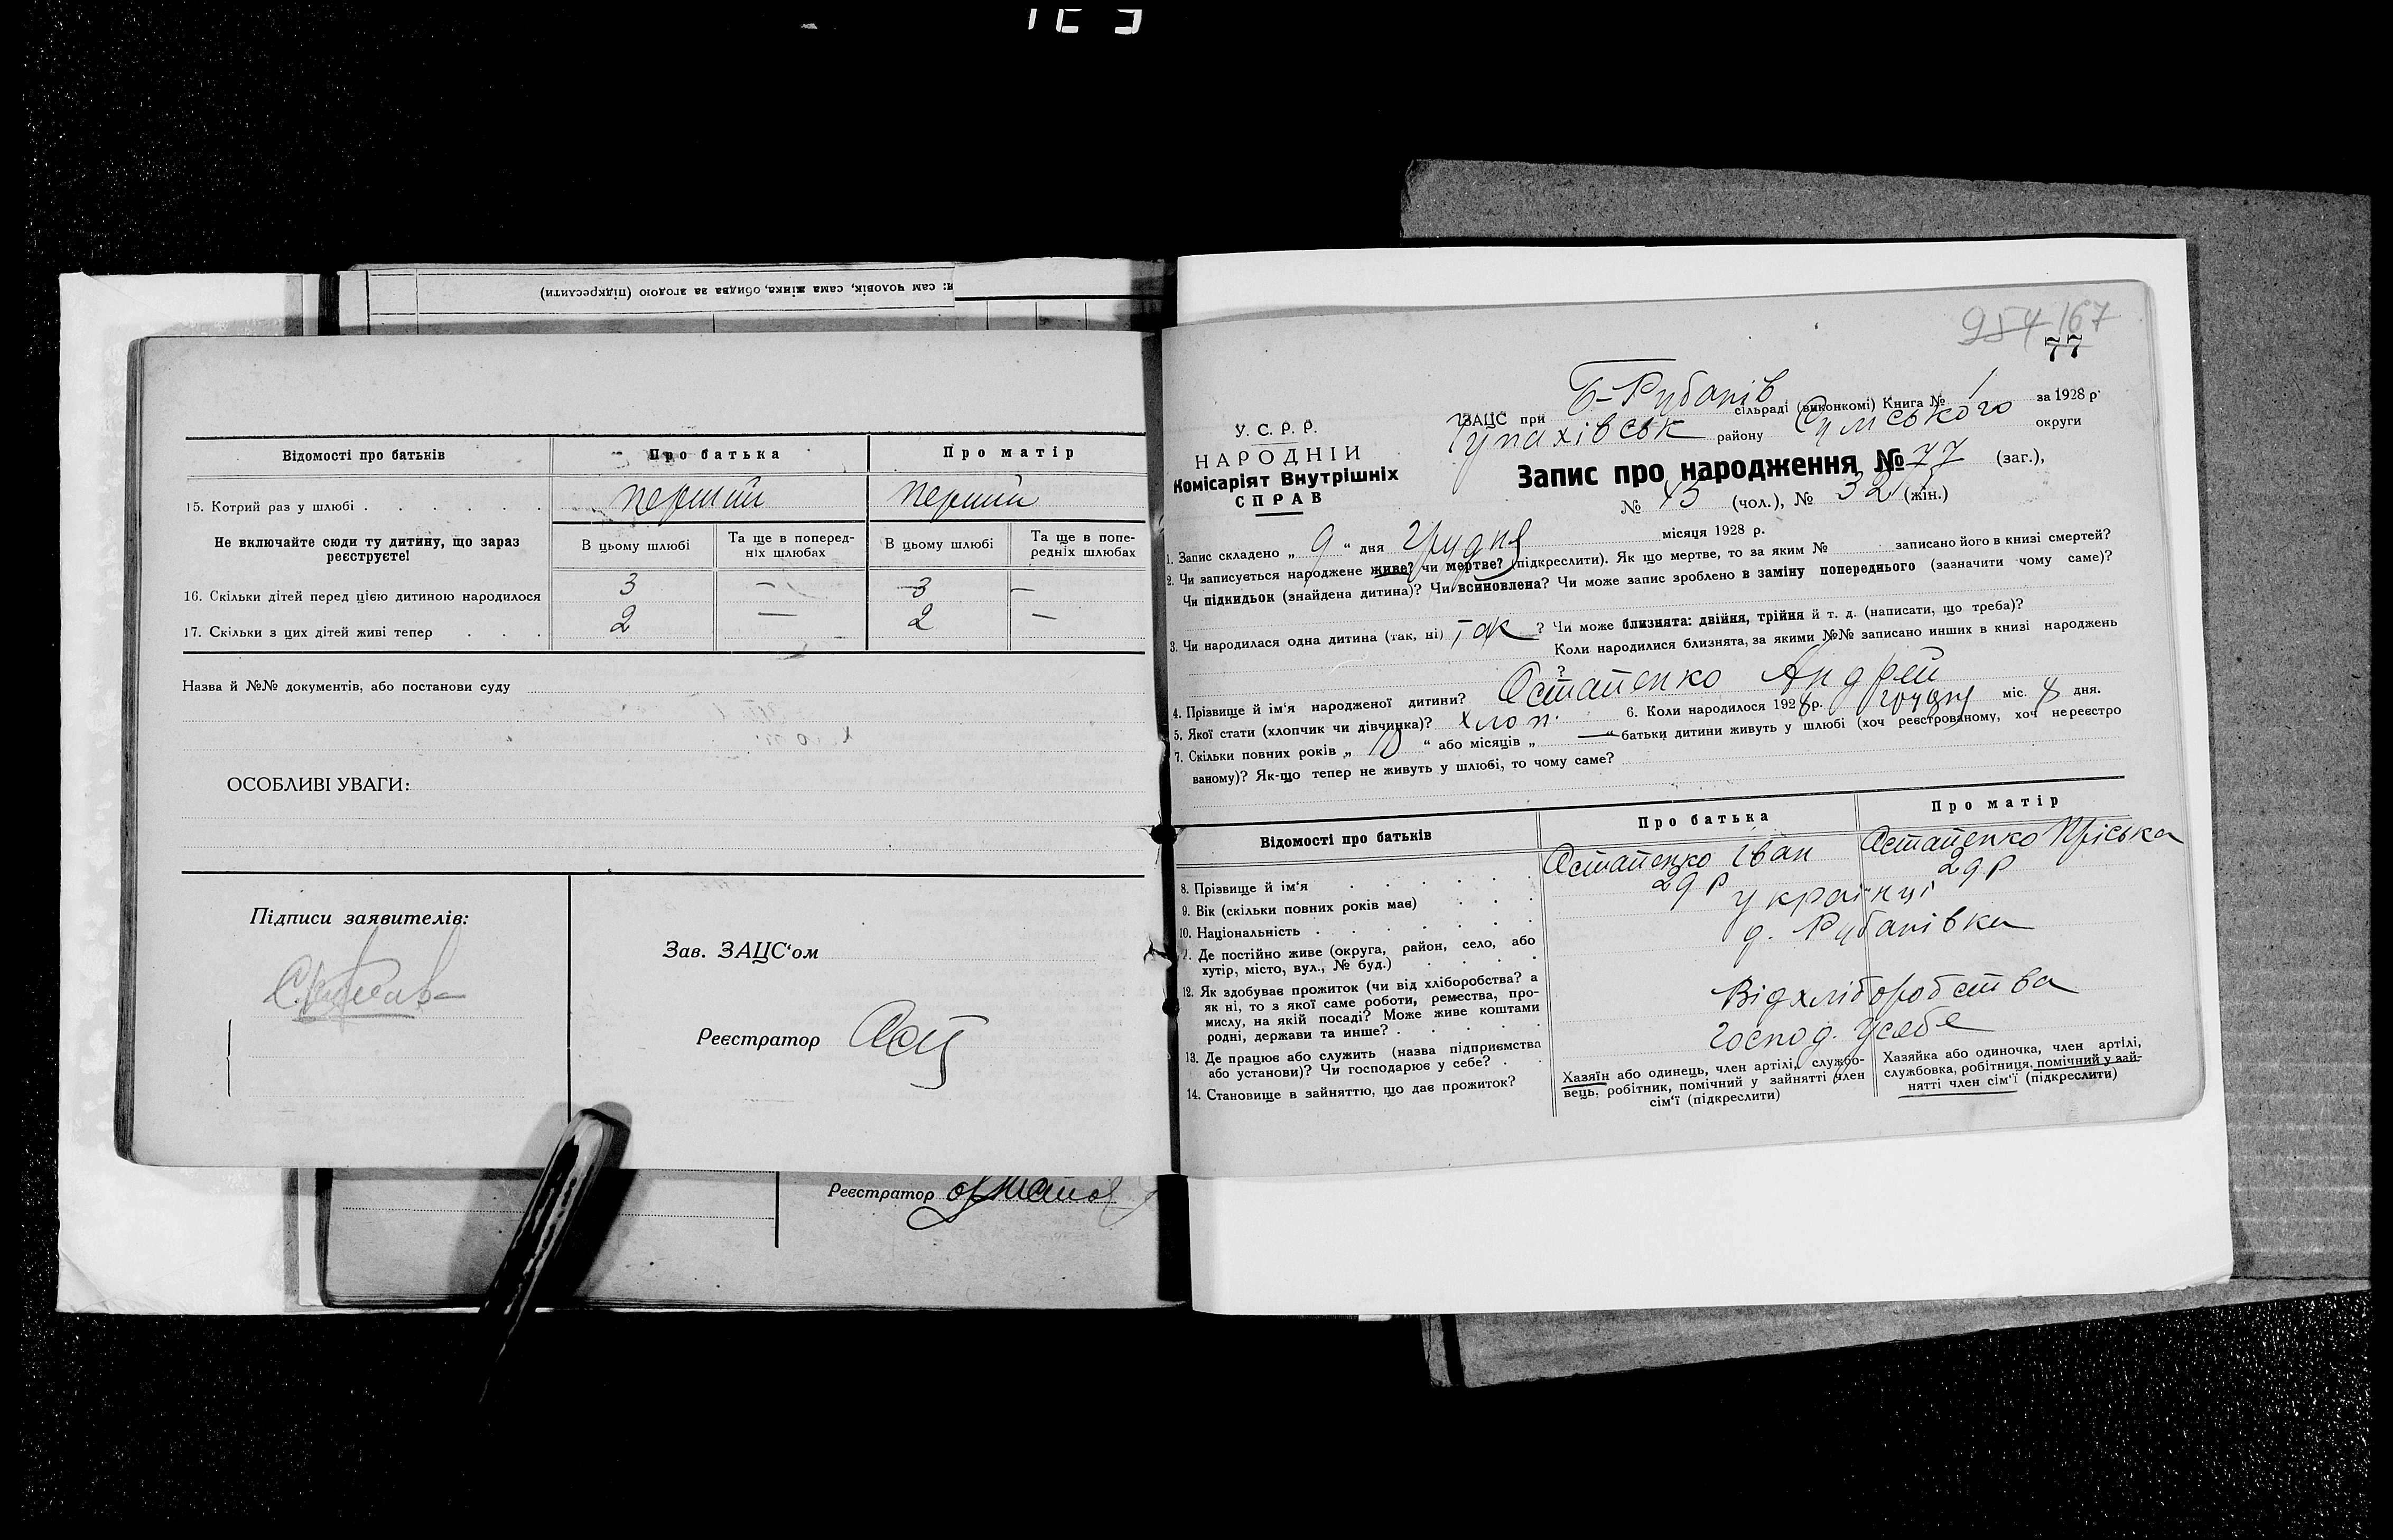 н: сам чоловік, сама жінка, обидва за згодою (підкреслити)
Відомості про батьків
Про батька
Про матір
15. Котрий раз у шлюбі
перший
перший
Не включайте сюди ту дитину, що зараз реєструєте!
В цьому шлюбі
Та ще в поперед-
ніх шлюбах
В цьому шлюбі
Та ще в попе-
редніх шлюбах
16. Скільки дітей перед цією дитиною народилося
3 — 3 —
17. Скільки з цих дітей живі тепер
2 — 2 —
Назва й №№ документів, або постанови суду
ОСОБЛИВІ УВАГИ:
Підписи заявителів:
Зав. ЗАЦС'ом
Реєстратор
Реєстратор
954 167
77
У. С. Р. Р.
НАРОДНІЙ
Комісаріят Внутрішніх
СПРАВ
ЗАЦС при Б-Рубанів сільраді (виконкомі) Книга № 1 за 1928 р.
Тупахівськ району Сумського округи
Запис про народження № 77 (заг.),
№ 45 (чол.), № 32 (жін.)
1. Запис складено „ 9 “ дня Грудня місяця 1928 р.
2. Чи записується народжене живе? чи мертве? (підкреслити). Як що мертве, то за яким № записано його в книзі смертей?
Чи підкидьок (знайдена дитина)? Чи всиновлена? Чи може запис зроблено в заміну попереднього (зазначити чому саме)?
3. Чи народилася одна дитина (так, ні) Так ? Чи може близнята: двійня, трійня й т. д. (написати, що треба)?
Коли народилися близнята, за якими №№ записано инших в книзі народжень
?
4. Прізвище й ім'я народженої дитини? Остапенко Андрей
5. Якої стати (хлопчик чи дівчинка)? хлоп. 6. Коли народилося 1928 р. грудня міс. 8 дня.
7. Скільки повних років „ 10 “ або місяців „ — “ батьки дитини живуть у шлюбі (хоч реєстрованому, хоч нереєстро
ваному)? Як-що тепер не живуть у шлюбі, то чому саме?
Відомості про батьків
Про батька
Про матір
8. Прізвище й ім'я
Остапенко Іван
Остапенко Пріська
9. Вік (скільки повних років має)
29 р
29 р
10. Національність
українці
11. Де постійно живе (округа, район, село, або
хутір, місто, вул., № буд.)
д. Рубанівка
12. Як здобуває прожиток (чи від хліборобства? а
як ні, то з якої саме роботи, ремества, про-
мислу, на якій посаді? Може живе коштами
родні, держави та инше?
Від хліборобства
13. Де працює або служить (назва підприємства
або установи)? Чи господарює у себе?
господ. у себе
14. Становище в зайняттю, що дає прожиток?
Хазяїн або одинець, член артілі, службо-
вець, робітник, помічний у зайнятті член
сім'ї (підкреслити)
Хазяйка або одиночка, член артілі,
службовка, робітниця, помічний у зай-
нятті член сім'ї (підкреслити)